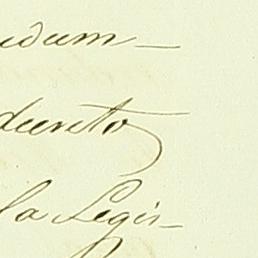 idum-
decreto
la Legis-